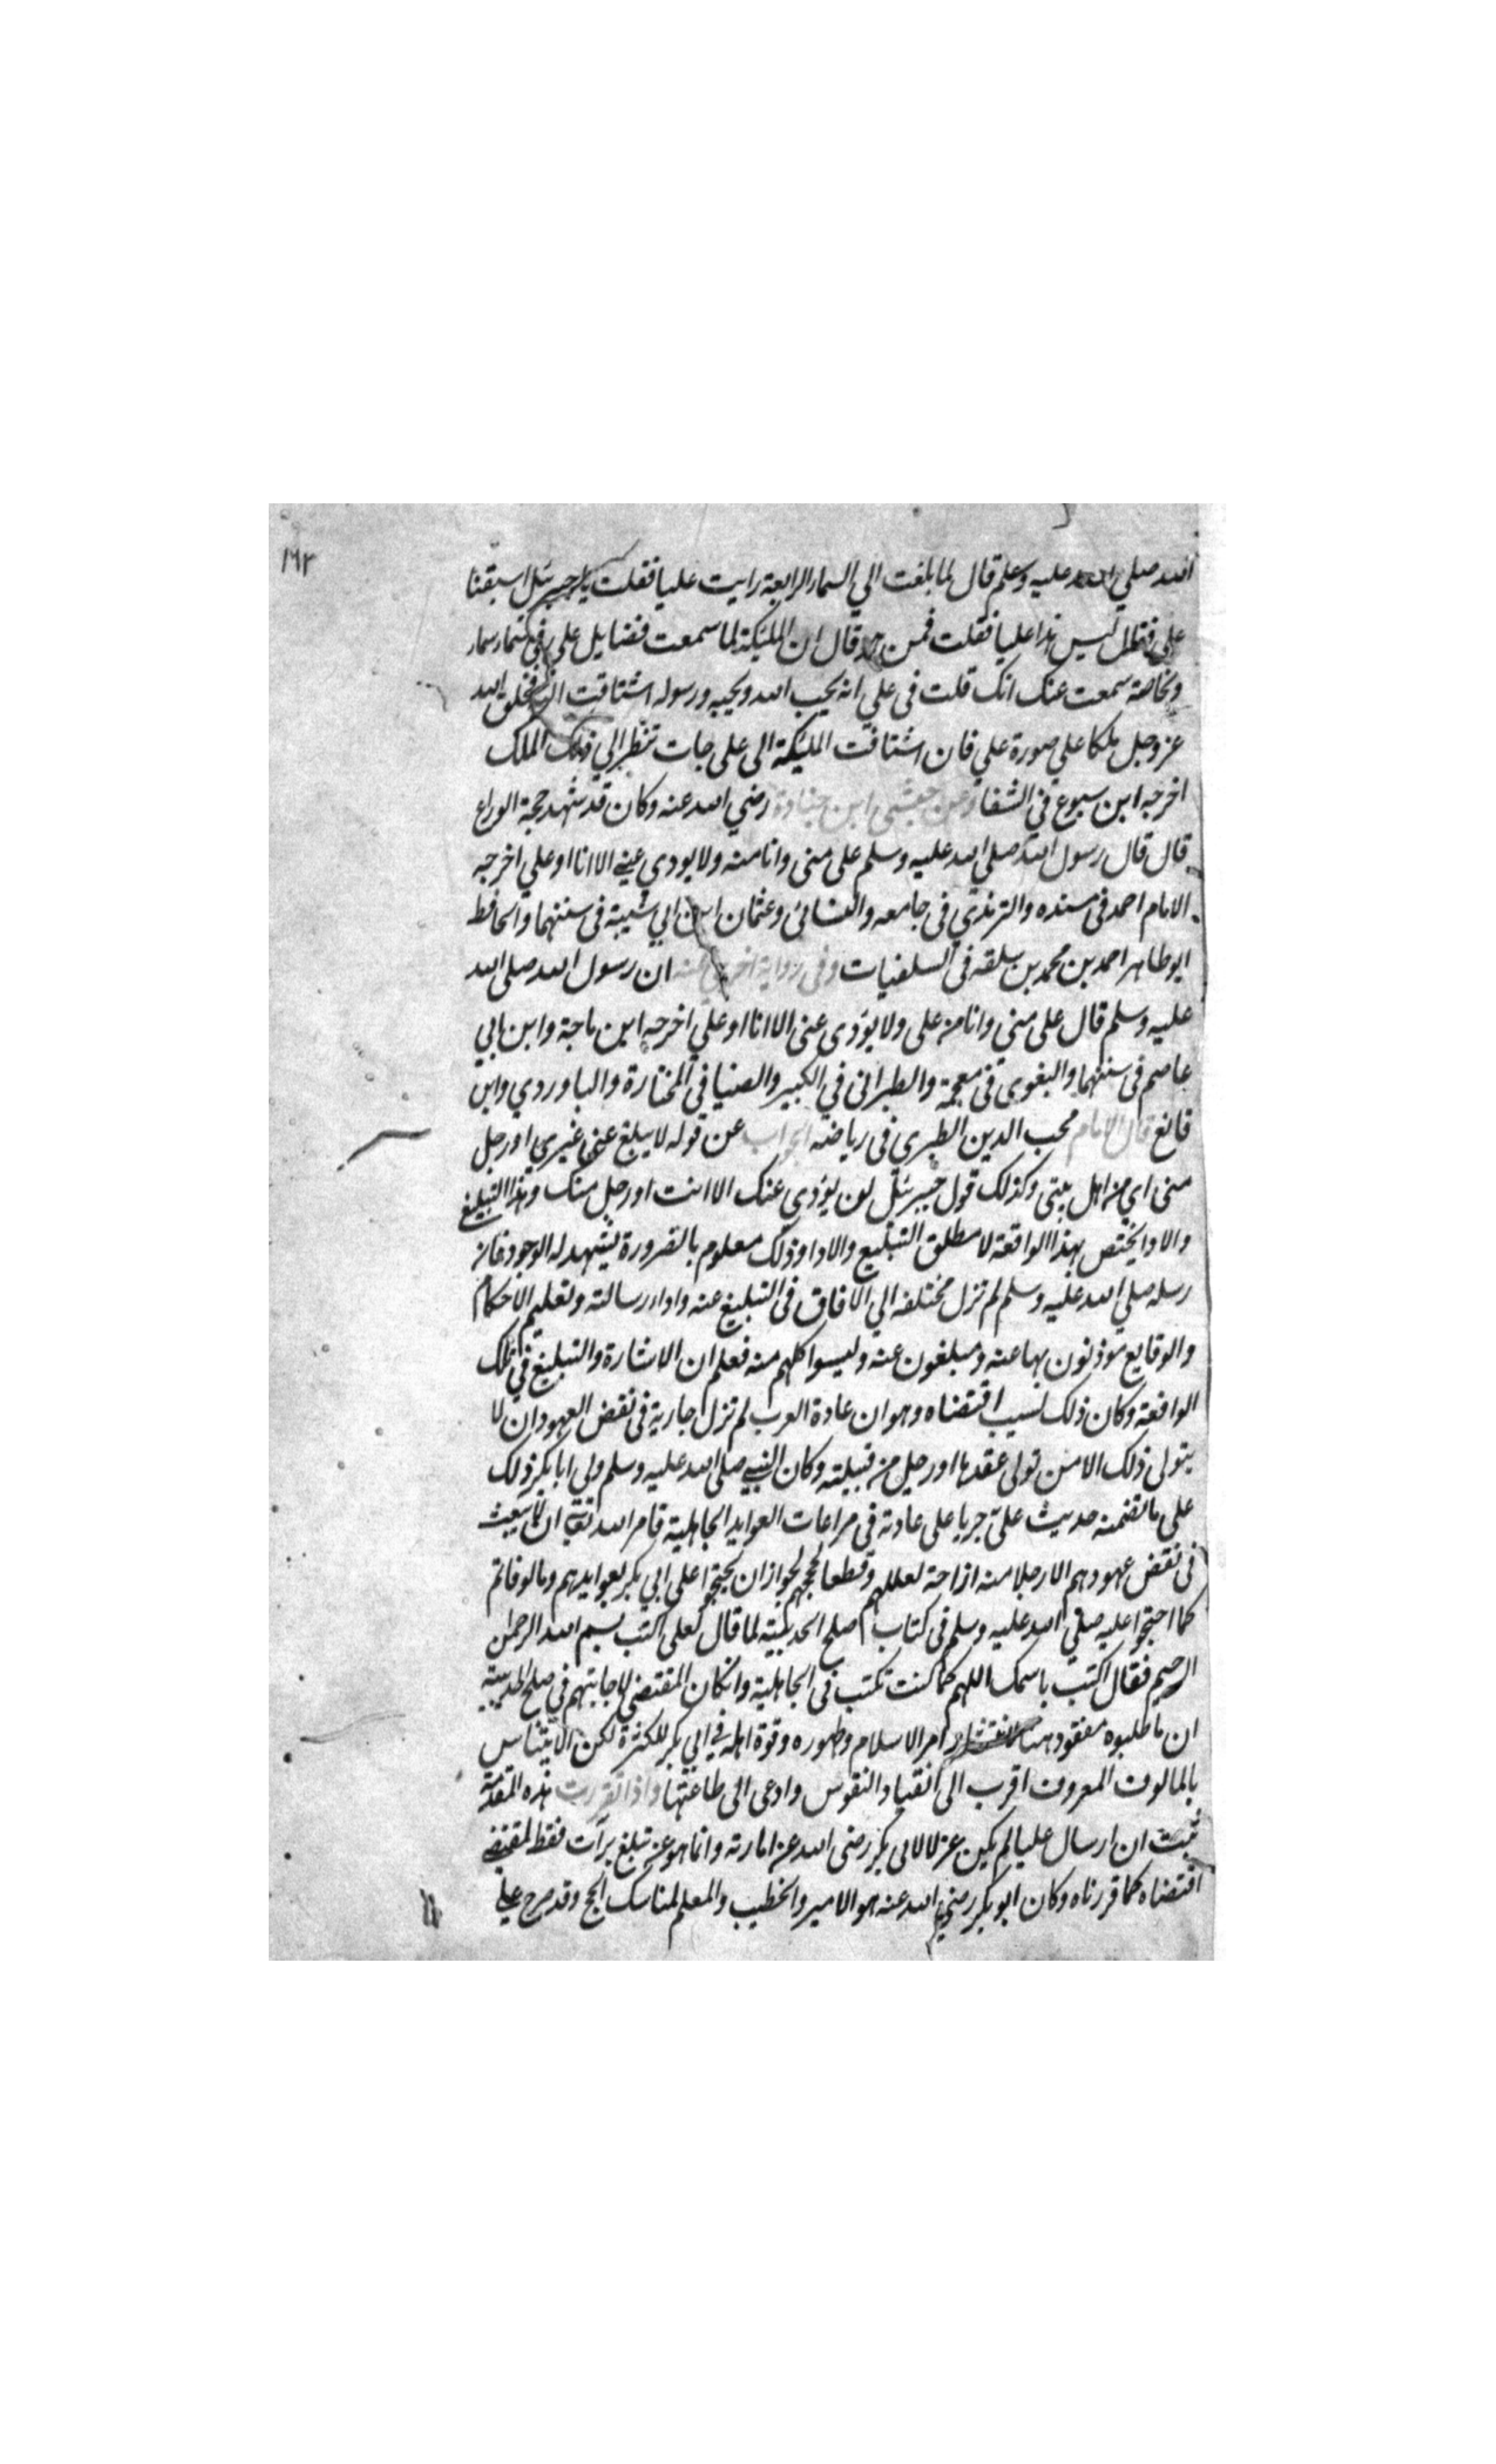 ١٦٢
الله صلي الله عليه وسلم قال لما بلغت الي السماء الرابعة رايت عليا فقلت يا جبرئيل اسبقنا
علي فقال ليس هذا عليا فقلت فمن هذا قال ان المليكة لما سمعت فضايل علي في سماء سماء
وبخاصة سمعت عنك انك قلت في علي انه يحب الله ويحبه ورسوله اشتاقت اليه فخلق الله
عز وجل ملكا علي صورة علي فان اشتاقت المليكة الى على جات تنظر الي ذلك الملك
اخرجه ابن سبوع في الشفا وعن حبشي ابن جنادة رضي الله عنه وكان قد شهد حجة الوداع
قال قال رسول الله صلي الله عليه وسلم على منى وانا منه ولا يودي عني الا انا او علي اخرجه
الامام احمد في مسنده والترمذي في جامعه والنسائي وعثمان ابن ابي شيبة في سننهما والحافظ
ابو طاهر احمد بن محمد بن سلفه في السلفيات وفي رواية اخري عنه ان رسول الله صلى الله
عليه وسلم قال على منى وانا من على ولا يؤدى عنى الا انا او علي اخرجه ابن ماجة وابن ابي
عاصم في سننهما والبغوي في معجمه والطبراني في الكبير والضيا في المختارة والباوردي وابن
قانع قال الامام محب الدين الطبري في رياضه الجواب عن قوله لا يبلغ عنى غيري او رجل
منى اي من اهل بيتى وكذلك قول جبرئيل لن يؤدي عنك الا انت او رجل منك وهذا التبليغ
والادا يختص بهذا الواقعة لا مطلق التبليغ والادا وذلك معلوم بالضرورة يشهد له الوجود فان
رسله صلي الله عليه وسلم لم تزل مختلفه الي الافاق في التبليغ عنه واداء رسالته وتعليم الاحكام
والوقايع يؤذنون بها عنه ومبلغون عنه وليسوا كلهم منه فعلم ان الاشارة والتبليغ في تلك
الواقعة وكان ذلك لسبب اقتضاه وهو ان عادة العرب لم تزل جارية في نقض العهود ان لا
يتولى ذلك الا من تولى عقدها او رجل من قبيلته وكان النبي صلى الله عليه وسلم ولي ابا بكر ذلك
على ما تضمنه حديث علي جريا على عادته في مراعات العوايد الجاهلية فامر الله تعالى ان لا يبعث
في نقض عهودهم الا رجلا منه ازاحة لعللهم وقطعا لحججهم لجواز ان يحتجوا على ابي بكر بعوايدهم ومالوفاتهم
كما احتجوا عليه صلي الله عليه وسلم في كتاب صلح الحديبية لما قال لعلي اكتب بسم الله الرحمن
الرحيم فقال اكتب باسمك اللهم كما كنت تكتب في الجاهلية وان كان المقتضي لاجابتهم في صلح الحديبية
ان ما طلبوه مفقود هنا لانتشار امر الاسلام وظهوره وقوة اهله في ابي بكر للكثرة لكن الايناس
بالمالوف المعروف اقرب الى انقياد النفوس وادعى الى طاعتها واذا تقررت هذه المقدمة
ثبت ان ارسال عليا لم يكن عزلا لابي بكر رضى الله عن امارته وانما هو عن تبليغ برآت فقط لمقتضى
اقتضاه كما قررناه وكان ابو بكر رضي الله عنه هو الامير والخطيب والمعلم لمناسك الحج وقد صرح علي